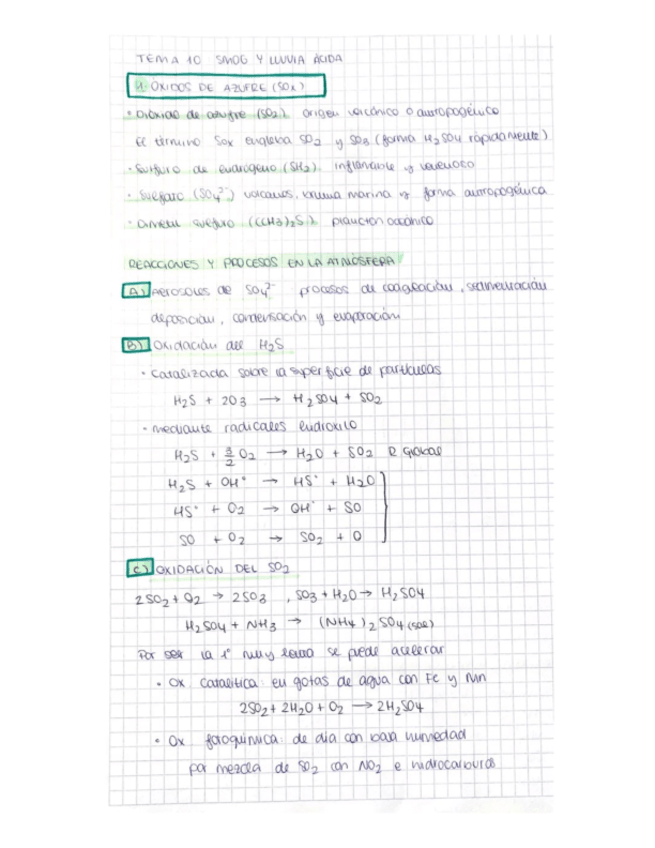 TEMA 10 SMOG Y LLUVIA ÁCIDA
1. ÓXIDOS DE AZUFRE (SOx)
• Dióxido de azufre (SO₂). origen volcánico o antropogénico
El término Sox engloba SO₂ y SO₃ (forma H₂SO₄ rápidamente)
• Sulfuro de hidrógeno (SH₂). inflamable y venenoso
• Sulfato (SO₄²⁻) volcanes, bruma marina y forma antropogénica
• Dimetil sulfuro ((CH₃)₂S). plancton oceánico
REACCIONES Y PROCESOS EN LA ATMÓSFERA
A) Aerosoles de SO₄²⁻ procesos de coagulación, sedimentación
deposición, condensación y evaporación
B) Oxidación del H₂S
• catalizada sobre la superficie de partículas
H₂S + 2O₃ → H₂SO₄ + SO₂
• mediante radicales hidroxilo
H₂S + 3/2 O₂ → H₂O + SO₂ R Global
H₂S + OH• → HS• + H₂O
HS• + O₂ → OH• + SO
SO + O₂ → SO₂ + O
C) OXIDACIÓN DEL SO₂
2SO₂ + O₂ → 2SO₃ , SO₃ + H₂O → H₂SO₄
H₂SO₄ + NH₃ → (NH₄)₂SO₄ (sol)
Por ser la 1ª muy lenta se puede acelerar
• Ox catalítica: en gotas de agua con Fe y Mn
2SO₂ + 2H₂O + O₂ → 2H₂SO₄
• Ox fotoquímica: de día con baja humedad
por mezcla de SO₂ con NO₂ e hidrocarburos